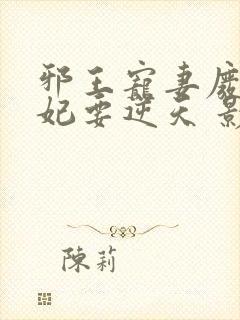 邪王寵妻廢
妃要逆天 影
陳莉